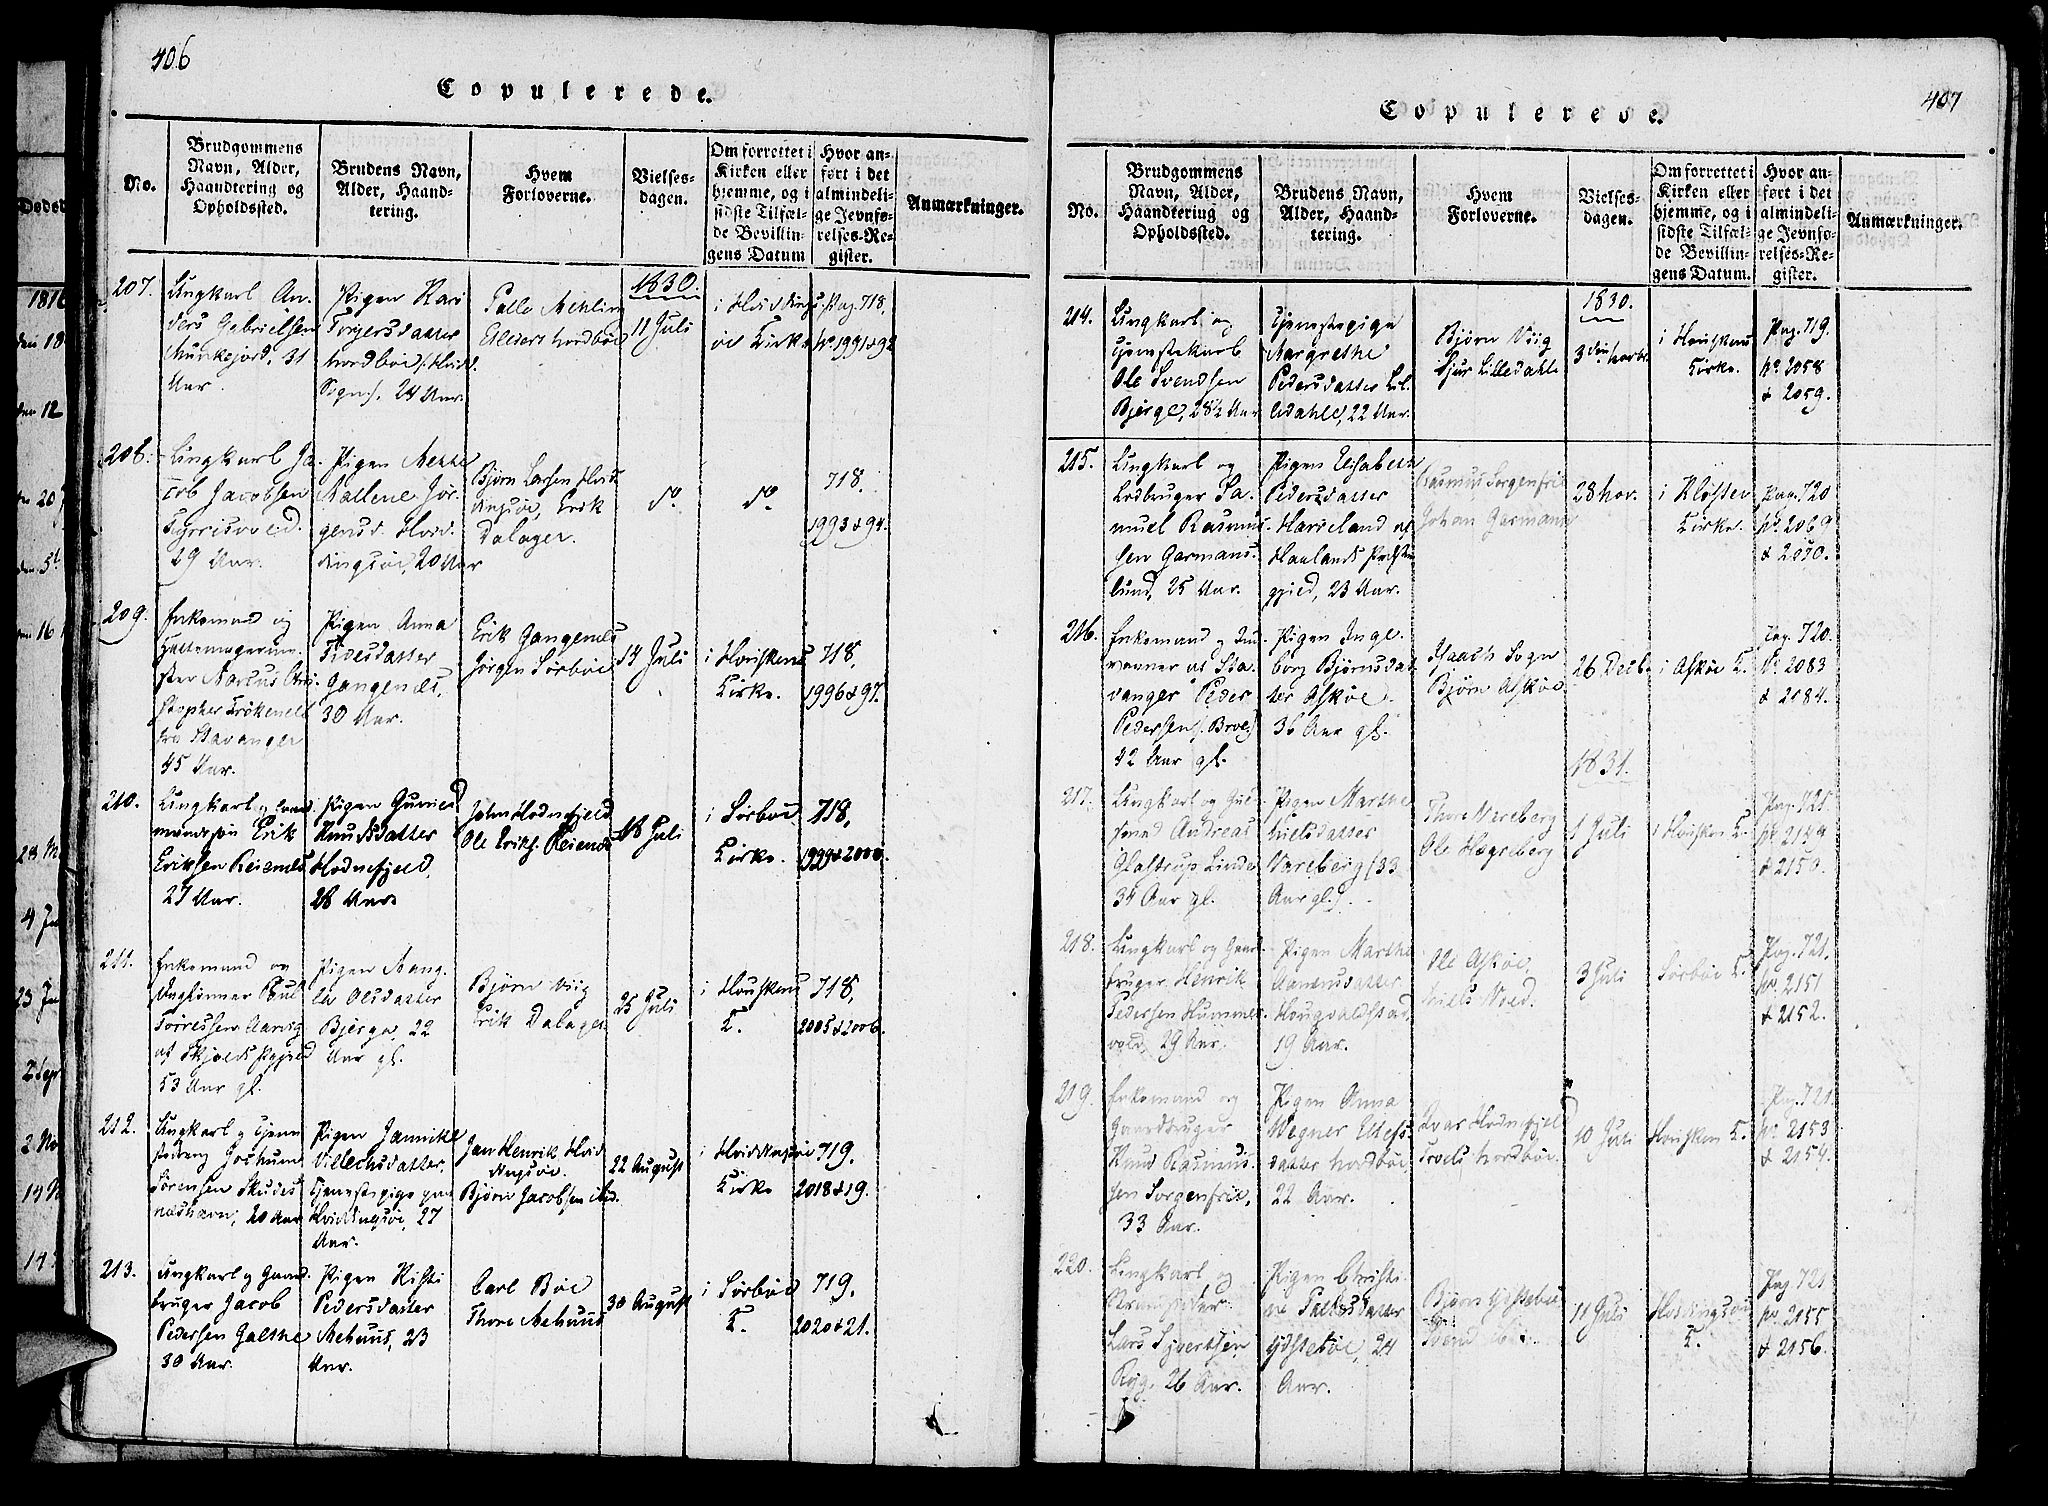 406
Copulerede.
No.
Brudgommens
Navn, Alder,
Haandtering og
Opholdssted.
Brudens Navn,
Alder, Haand-
tering.
Hvem
Forloverne.
Vielses-
dagen.
Om forrettet i
Kirken eller
hjemme, og i
sidste Tilfæl-
de Bevillin-
gens Datum
Hvor an-
ført i det
almindeli-
ge Jevnfø-
relses-Re-
gister.
Anmærkninger.
1830.
207.
Ungkarl An-
ders Gabrielsen
31
Aar.
Pigen Kari
Torgersdatter
Nordbøe
Sogn, 24 Aar.
Palle Mehling
Nordbøe
11 Juli
i Hviddings-
øe Kirke
Pag. 718,
No. 1991 & 92
208.
Ungkarl Ja-
cob Jacobsen
29 Aar.
Pigen Mette
Mallene Jør-
gensd. Hvid-
dingsøe, 20 Aar
Bjørn Larsen Hvid-
dingsøe, Erik
Dalager.
do
do
718.
1993 & 94.
209.
Enkemand og
Marcus Chri-
stopher
fra Stavanger
45 Aar.
Pigen Anna
Gangenæs,
30 Aar.
Erik Gangenæs
Jørgen Sørbøe
14 Juli
i Houskens
Kirke.
718,
1996 & 97.
210.
Ungkarl og
Erik
Eriksen Reienæs
27 Aar.
Pigen Gunild
Knudsdatter
Hodnefjeld,
28 Aar
John Hodnefjeld
Ole Eriks. Reienæs
18 Juli
i Sørbøe
Kirke.
718,
1999 & 2000.
211.
Enkemand og
Poul
Torressen Aarvig
af Skjolds Pgjeld
53 Aar gl.
Pigen Mang-
le Olsdatter
Bjerga, 22
Aar gl.
Bjørn Viig
Erik Dalager
25 Juli
i Houskens
K.
718,
2005 & 2006.
212.
Ungkarl og Tjene-
Jochum
Sørensen Skudes-
næshavn, 20 Aar
Pigen Jannike
Villechsdatter,
Tjenestepige paa
Hviddingsøe, 27
Aar.
Jan Henrik Hvid-
dingsøe.
Bjørn Jacobsen ibid.
22 August
i Hviddingsøe
Kirke
719.
2018 & 19.
213.
Ungkarl og Gaard-
bruger Jacob
Pedersen Galthe
30 Aar.
Pigen Kisti
Pedersdatter
Mehuus, 23
Aar.
Carl Bøe
Thore Mehuus
30 August
i Sørbøe
K.
719.
2020 & 21.
407
Copulerede.
No.
Brudgommens
Navn, Alder,
Haandtering og
Opholdssted.
Brudens Navn,
Alder, Haand-
tering.
Hvem
Forloverne.
Vielses-
dagen.
Om forrettet i
Kirken eller
hjemme, og i
sidste Tilfæl-
de Bevillin-
gens Datum.
Hvor an-
ført i det
almindeli-
ge Jevnfø-
relses-Re-
gister.
Anmærkninger.
1830.
214.
Ungkarl og
Tjenestekarl
Ole Svendsen
Bjerge, 28½ Aar
Tjenestepige
Margrethe
Pedersdatter Lil-
ledahle, 22 Aar.
Bjørn Viig
Sjur Lilledahle
3 Novbr.
i Houskens
Kirke.
Pag. 719.
No. 2058
& 2059.
215.
Ungkarl og
Sa-
muel Rasmus-
sen Garmans-
lund, 25 Aar.
Pigen Elisabeth
Pedersdatter
Harieland af
Haalands Præste-
gjeld, 23 Aar.
Rasmus Sorgenfrie
Johan Garmann
28 Nov.
i Kloster
Kirke.
Pag. 720
No. 2069
& 2070.
216.
Enkemand og Ind-
vaaner af Sta-
vanger Peder
Pedersen
42 Aar gl.
Pigen Inge-
borg Bjørnsdat-
ter Askøe.
36 Aar gl.
Isaach Sogn
Bjørn Askøe
26 Decbr.
i Askøe K.
Pag. 720.
No. 2083
& 2084.
1831.
217.
Ungkarl og
Andreas
Glastrup Linde
34 Aar gl.
Pigen Marthe
Nielsdatter
Vareberg (33
Aar gl.).
Thore Vareberg
Ole Hegreberg
1 Juli
i Housken K.
Pag. 721.
No. 2149
& 2150.
218.
Ungkarl og Gaard-
bruger Henrik
Pedersen Hummer-
vold, 29 Aar.
Pigen Marthe
19 Aar.
Ole Askøe,
Niels Voed.
3 Juli
Sørbøe K.
Pag. 721.
No. 2151
& 2152.
219.
Enkemand og
Gaardbruger
Knud Rasmus-
sen Sorgenfrie,
33 Aar.
Pigen Anna
Wegner
datter Nordbøe
22 Aar.
Ivar Hodnefjel
Troels Nordbøe.
10 Juli
Housken K.
Pag. 721.
No. 2153
& 2154.
220.
Ungkarl og
Lars Sjvertsen
Ryg, 26 Aar.
Pigen Christi-
ne Pallesdatter
Ydstebøe, 24
Aar.
Bjørn Ydstebøe
11 Juli
Hviddingsøe
K.
Pag 721
No. 2155
& 2156.